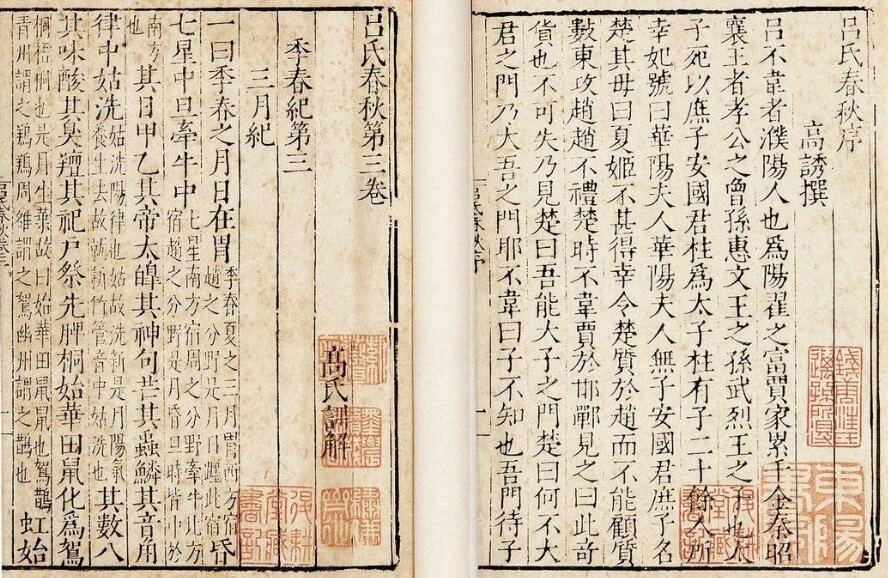 呂氏春秋序
高誘撰
呂不韋者濮陽人也爲陽翟之富賈家累千金秦昭
襄王者孝公之曾孫惠文王之孫武烈王之子也太
子死以庶子安國君柱爲太子柱有子二十餘人所
幸妃號曰華陽夫人華陽夫人無子安國君庶子名
楚其母曰夏姬不甚得幸令楚質於趙而不能顧質
數東攻趙趙不禮楚時不韋賈於邯鄲見之曰此奇
貨也不可失乃見楚曰吾能大子之門楚曰何不大
君之門乃大吾之門耶不韋曰子不知也吾門待子
呂氏春秋序
呂氏春秋第三卷
高氏訓解
季春紀第三
三月紀
一曰季春之月日在胃季春夏之三月胃西方宿趙之分野是月日躔此宿昏
七星中旦牽牛中七星南方宿周之分野牽牛北方宿趙之分野是月昏旦時皆中於
南方也其日甲乙其帝太皥其神句芒其蟲鱗其音角
律中姑洗姑洗陽律也姑故洗新是月陽氣養生去故就新竹管音中姑洗也其數八
其味酸其臭羶其祀戶祭先脾桐始華田鼠化爲鴽
桐梧桐也是月生葉故曰始華田鼠鼠也鴽青州謂之周雒謂之鴽幽州謂之也虹始